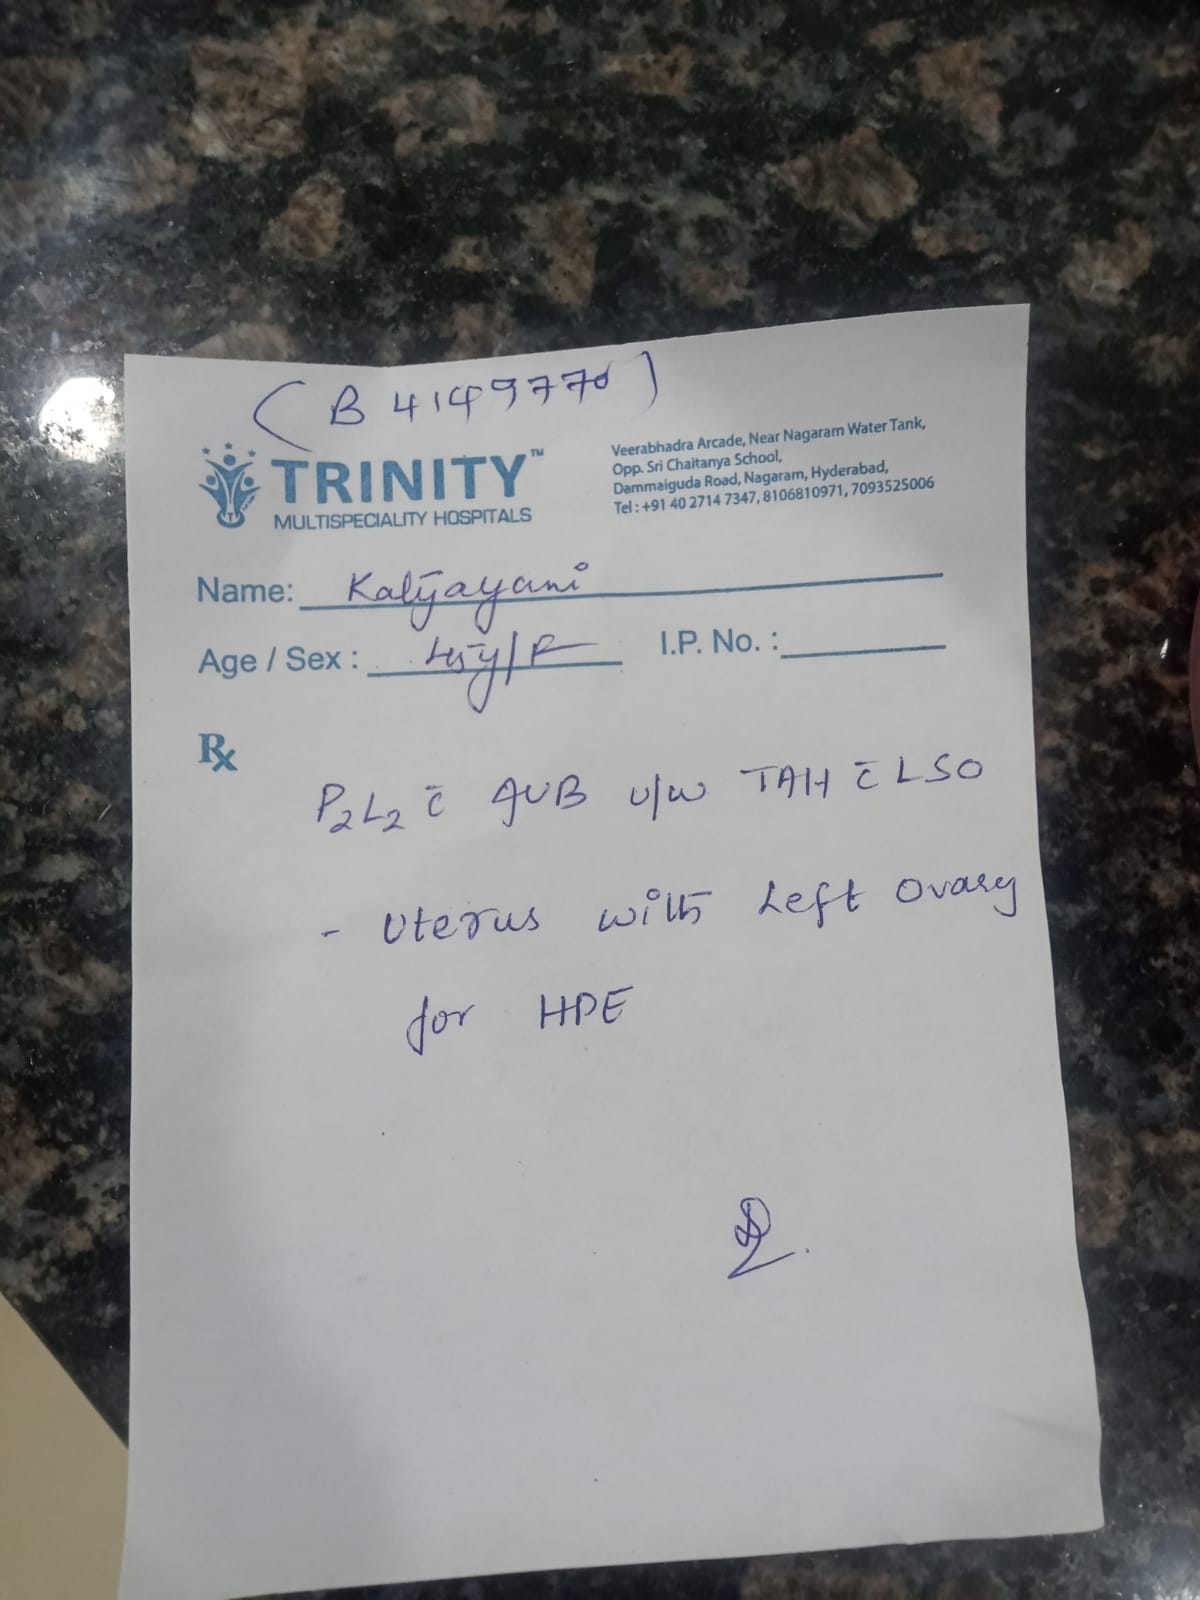 (B 4149770)
TRINITY™
MULTISPECIALITY HOSPITALS
Veerabhadra Arcade, Near Nagaram Water Tank,
Opp. Sri Chaitanya School,
Dammaiguda Road, Nagaram, Hyderabad,
Tel : +91 40 2714 7347, 8106810971, 7093525006
Name: Kalyayani
Age / Sex : 45y/F I.P. No. :
Rx
P2L2 c̄ AUB u/w TAH c̄ LSO
- Uterus with Left Ovary
for HPE